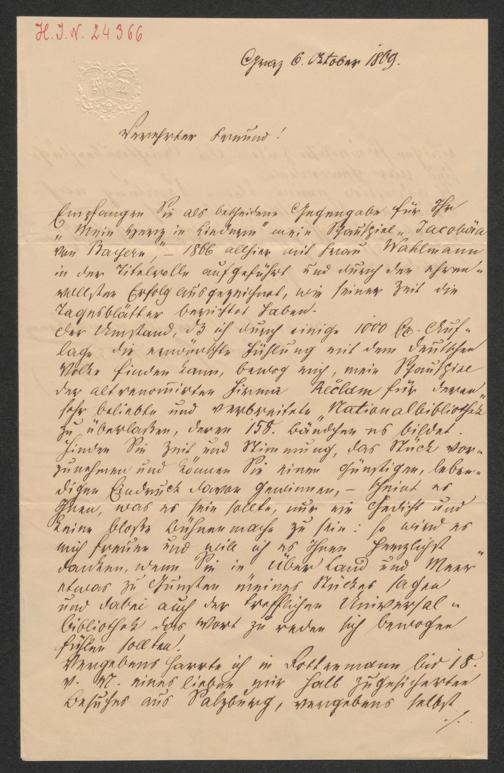 H.I.N. 24366
Graz 6. Oktober 1869.
Verehrter Freund!
Empfangen Sie als bescheidene Gegengabe für Ihr
„Mein Herz in Liedern“ mein Schauspiel „Jacobäa
von Bayern“, – 1866 allhier mit Frau Wahlmann
in der Titelrolle aufgeführt und durch den ehren-
vollsten Erfolg ausgezeichnet, wie seiner Zeit die
Tagesblätter berichtet haben.
Der Umstand, daß ich durch einige 1000 Ex. Auf-
lage die erwünschte Fühlung mit dem deutschen
Volke finden kann, bewog mich, mein Schauspiel
der altrenomirten Firma Reclam für deren
sehr beliebte und verbreitete „Nationalbibliothek“
zu überlassen, deren 155. Bändchen es bildet.
Finden Sie Zeit und Stimmung, das Stück vor-
zunehmen und können Sie einen günstigen, leben-
digen Eindruck davon gewinnen, – scheint es
Ihnen, was es sein sollte, mir ein Gedicht und
keine bloße Bühnenmache zu sein: so wird es
mich freuen und will ich es Ihnen herzlichst
danken, wenn Sie in „Über Land und Meer“
etwas zu Gunsten meines Stückes sagen
und dabei auch der trefflichen Universal-
bibliothek das Wort zu reden sich bewogen
fühlen sollten!
Vergebens harrte ich in bis 18.
v. M. eines lieben mir halb zugesicherten
Besuches aus Salzburg, vergebens selbst
./.